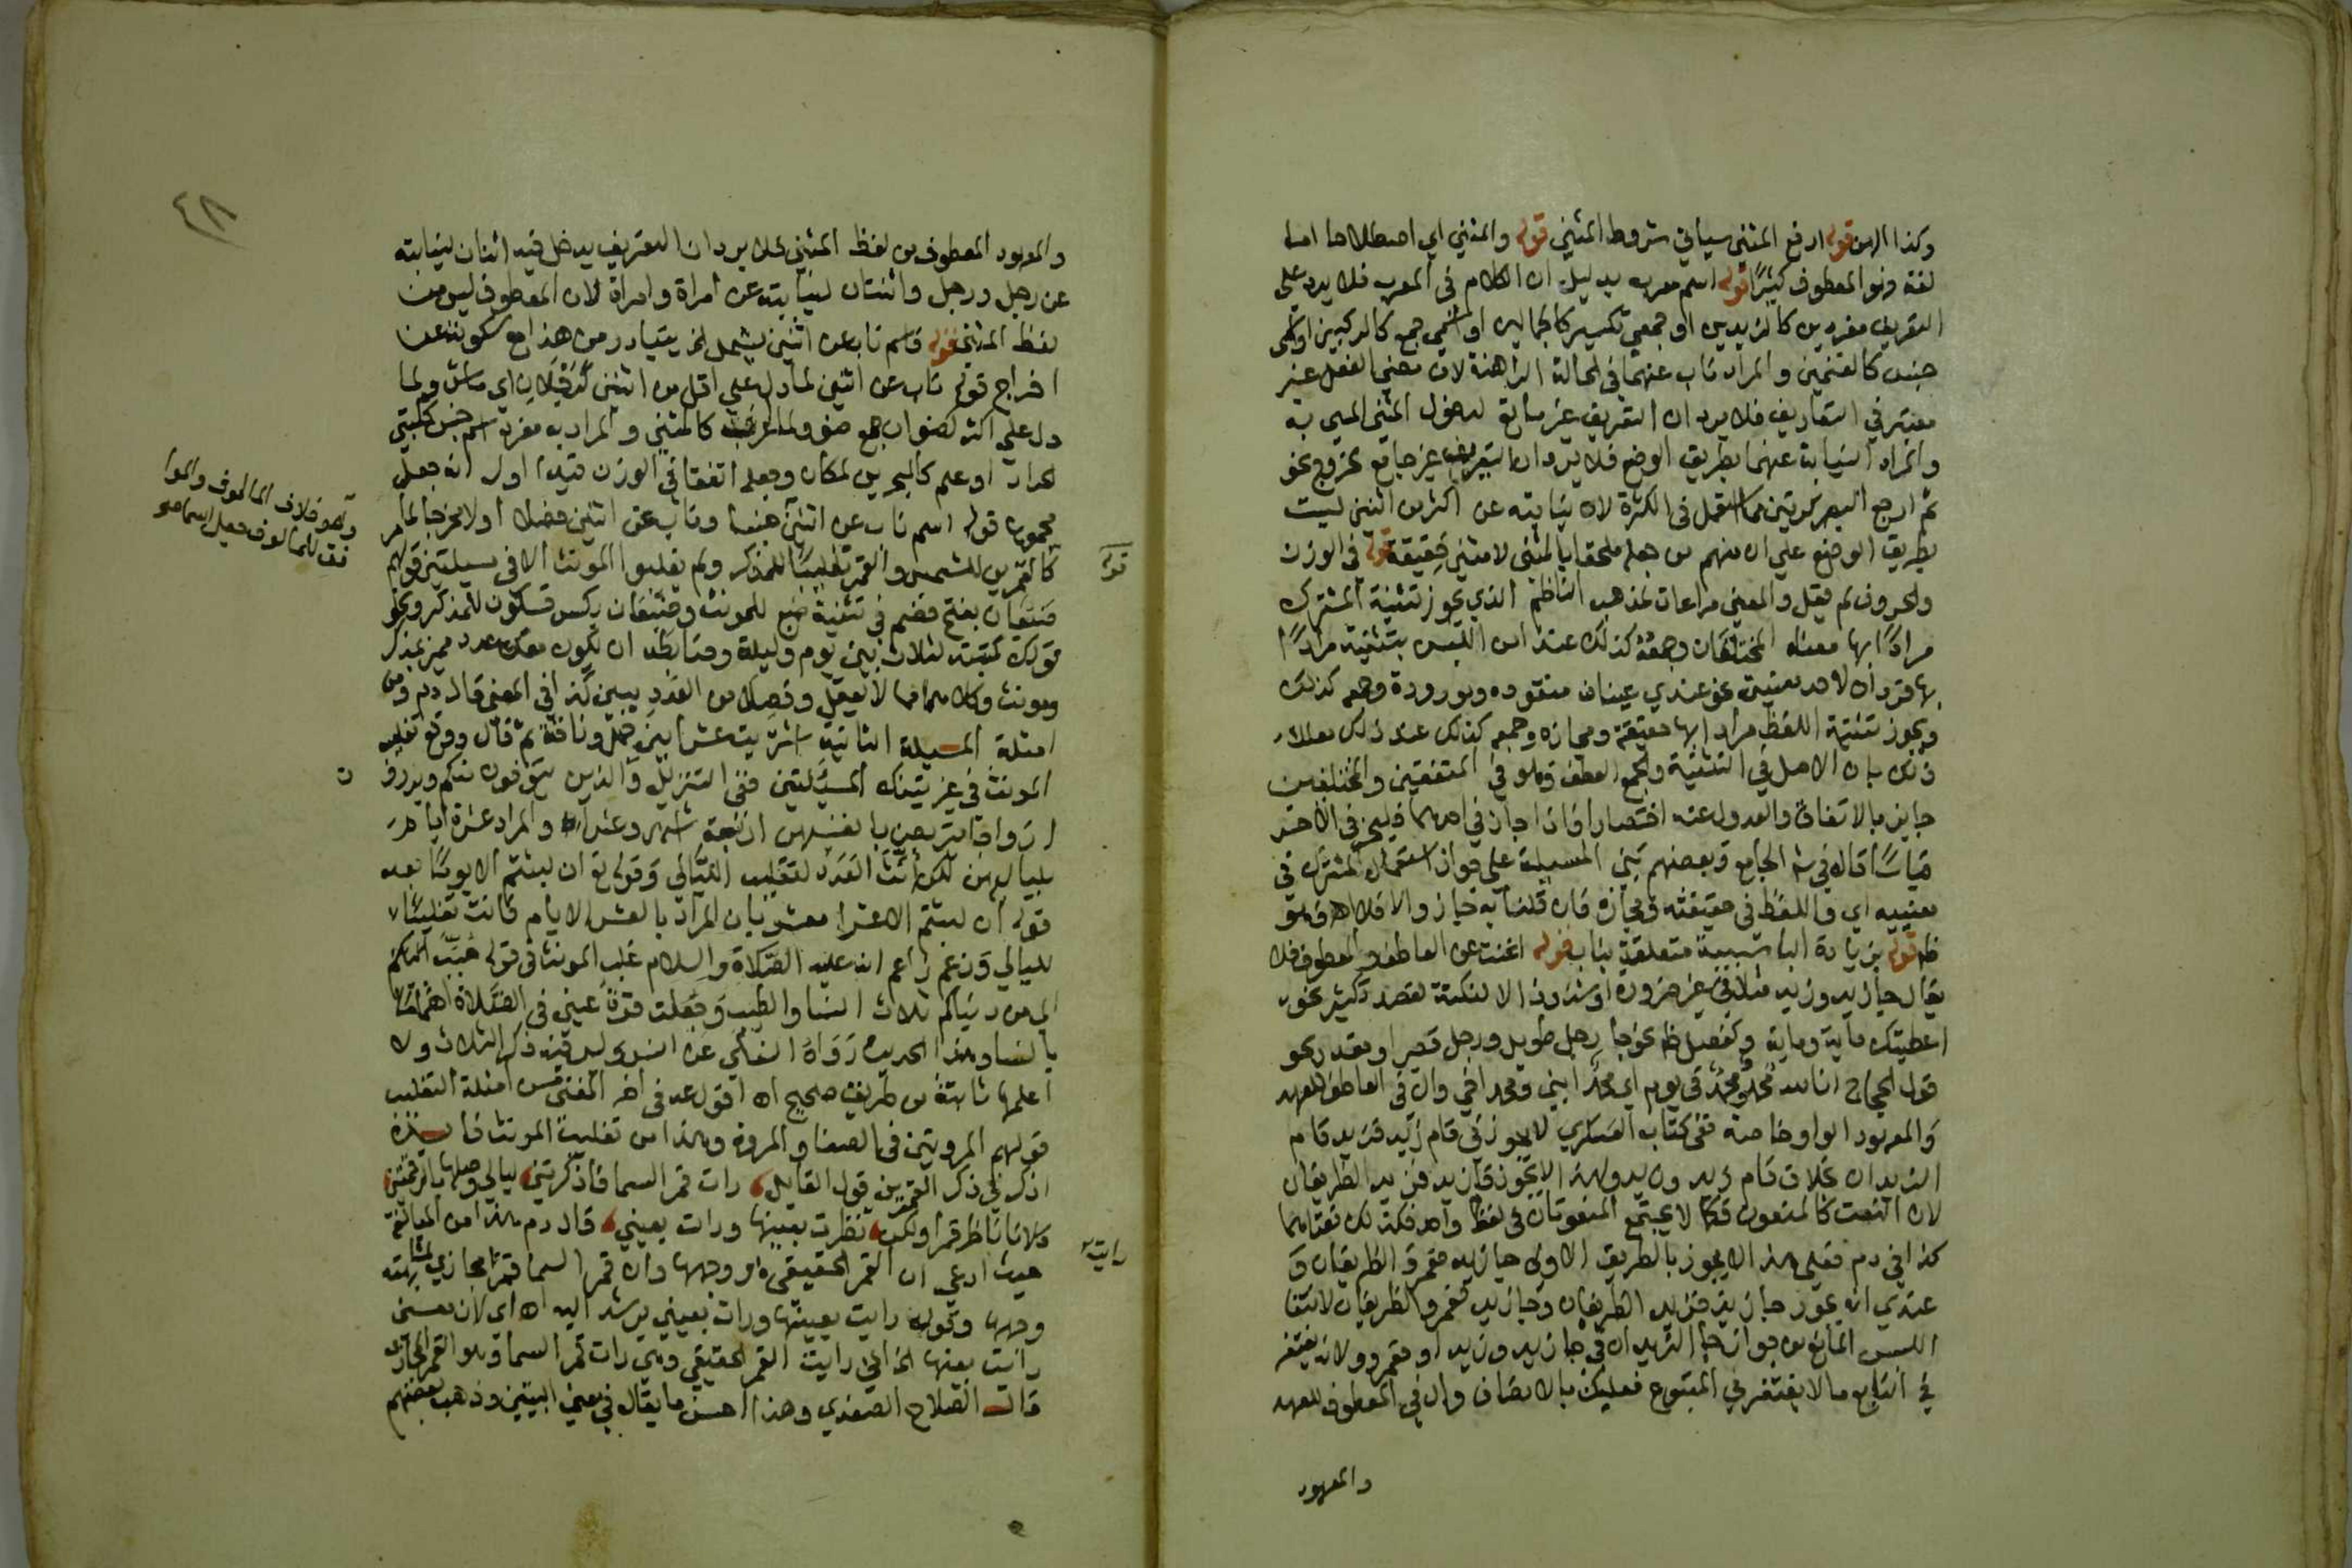 وكذا الهن قوله ارفع المثنى سياتي شروط المثني قوله والمثني اي اصطلاحا اما
لغة فهو المعطوف كثيرًا قوله اسم معرب بدليل ان الكلام في المعرب فلا يرد على
التعريف مفردين كالزيدين او جمعي تكسير كالجمالين او اسمي جمع كالركبين او اسمي
جنس كالغنمين والمراد ناب عنهما في الحالة الراهنة لان معنى الفعل غير
معتبر في التعاريف فلا يرد ان التعريف غير مانع لدخول المثنى المسمى به
والمراد النيابة عنهما بطريق الوضع فلا يرد ان التعريف غير جامع لخروج نحو
ثم ارجع البصر كرتين مما استعمل في الكثرة لان نيابته عن اكثر من اثنين ليست
بطريق الوضع علي ان منهم من جعله ملحقا بالمثنى لا مثني حقيقة قوله في الوزن
والحروف لم يقل والمعنى مراعات لمذهب الناظم الذي يجوز تثنية المشترك
مرادًا بها معناه المختلفان وجمعه كذلك عند امن اللبس بتثنيته مرادًا
بها فردان لاحد معنييه نحو عندي عينان منقوده ومورودة وجمعه كذلك
ويجوز تثنية اللفظ مرادا بها حقيقة ومجازه وجمعه كذلك عند ذلك معللا
ذلك بان الاصل في التثنية والجمع العطف وهو في المتفقين والمختلفين
جايز بالاتفاق والعدول عنه اختصارا فاذا جاز في احدهما فليجز في الاخر
قياسًا قاله في شرح الجامع وبعضهم بنى المسيلة على جواز استعمال المشترك في
معنييه اي واللفظ في حقيقته ومجازه فان قلنا به جاز والا فلا اه وهو
ظ قوله بزيادة البا سببية متعلقة بناب قوله اغنت عن العاطف والمعطوف فلا
يقال جا زيد وزيد مثلا في غير ضرورة او شذوذ الا لنكتة لقصد تكثير نحو
اعطيتك ماية وماية وكفصل ظ نحو جا رجل طويل ورجل قصير او مقدر نحو
قول الحجاج انا لله محمدٌ ومحمدٌ في يوم اي محمدٌ ابني ومحمد اخي وال في العاطف للعهد
والمعهود الواو خاصة ففي كتاب العسكري لا يجوز في قام زيد فزيد قام
الزيدان بخلاف قام زيد وزيد ولهذا لا يجوز قام زيد فزيد الظريفان
لان النعت كالمنعوت فكما لا يجتمع المنعوتان في لفظ واحد فكذلك نعتاهما
كذا في دم فعلى هذا لا يجوز بالطريق الاولى جا زيد فعمرو الظريفان و
عندي انه يجوز جا زيد فزيد الظريفان وجا زيد فعمرو الظريفان لانتفا
اللبس المانع من جواز جا الزيدان في جا زيد وزيد او فعمرو ولانه يغتفر
في التابع ما لا يغتفر في المتبوع فعليك بالانصاف وال في المعطوف للعهد
والمعهود
٤٨
والمعهود المعطوف من لفظ المثنى فلا يرد ان التعريف يدخل فيه اثنان لنيابته
عن رجل ورجل واثنتان لنيابته عن امراة وامراة لان المعطوف ليس من
لفظ المثنى قوله فاسم ناب عن اثنين يشمل الخ يتبادر من هذا مع سكوته عن
اخراج قوله ناب عن اثنين لما دل علي اقل من اثنين اي ماش ولما
دل علي اكثر كصنوان جمع صنو ولما كالمثني والمراد به مفرد اسم جنس ككلبتي
الحداد او علم كالبحرين لمكان وجعله اتفقا في الوزن قيدا اول انه جعل
مجموع قوله اسم ناب عن اثنين جنسا وناب عن اثنين فصلا اولا مخرجا لما مر
كالقمرين للشمس والقمر تغليبًا للمذكر ولم يغلبوا المونث الا في مسيلتين قولهم
ضبعان بفتح فضم في تثنية ضبع للمونث وضبعان بكسر فسكون للمذكر ونحو
قولك كتبته لثلاث بين يوم وليلة وضابطه ان يكون معك عدد مميز بمذكر
ومونث وكلاهما مما لا يعقل وفصلا من العدد ببين كذا في المغنى قال دم ومن
امثلة المسيلة الثانية اشتريت عشرا بين جمل وناقة ثم قال ووقع تغليب
المونث في غير تينك المسئلتين ففي التنزيل والذين يتوفون منكم ويذرون
ازواجا يتربصن بانفسهن اربعة اشهر وعشرا والمراد عشرة ايام
بلياليهن لكن أنَّثَ العَدَد لتغليب الليالي وقوله تع ان لبثتم الا يومًا بعد
قوله ان لبثتم الا عشرا مشعر بان المراد بالعشر الايام فانث تغليبًا
لليالي وزعم زاعم انه عليه الصلاة والسلام غلب المونث في قوله حُبِّبَ
الي من دنياكم ثلاث النسا والطيب وجُعلت قرةُ عيني في الصلاة اهتمامًا
بالنسا وهذا الحديث رَوَاهُ النسائي عن انس وليس فيه ذكر الثلاث ولا
اعلمها ثابتة من طريق صحيح اه اقول عد في اخر المغنى من امثلة التغليب
قولهم المروتين في الصفا والمروة وهذا من تغليب المونث فايدة
اذكر في ذكر القمرين قول القايل رات قمر السما فاذكرتني ليالي وصلها بالرقمتين
كلانا ناظر قمرا ولكن نظرت بعينها ورات بعيني قال دم هذا من المبالغة
حيث ادعي ان القمر الحقيقي هو وجهها وان قمر السما قمر مجازي لمشابهته
وجهها وقوله رايت بعينها ورات بعيني يرشد اليه اه اي لان معنى
رايت بعينها الخ اني رايت القمر الحقيقي وهي رات قمر السما وهو القمر المجازي
قال الصلاح الصفدي وهذا احسن ما يقال في معنى البيتين وذهب بعضهم
وهو خلاف المالوف والموا
فق للمالوف جعل اسما هو
قوله
ن
رايت